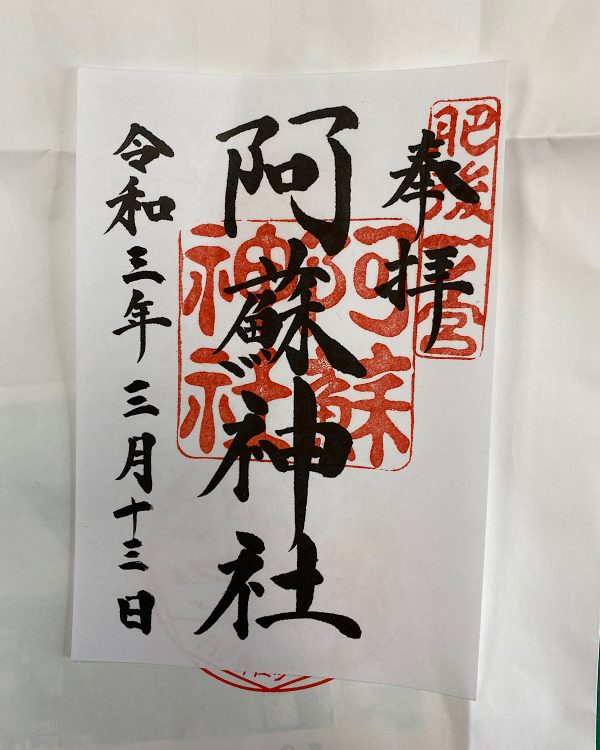 奉拝
肥後一宮
阿蘇神社
阿蘇神社
令和三年三月十三日